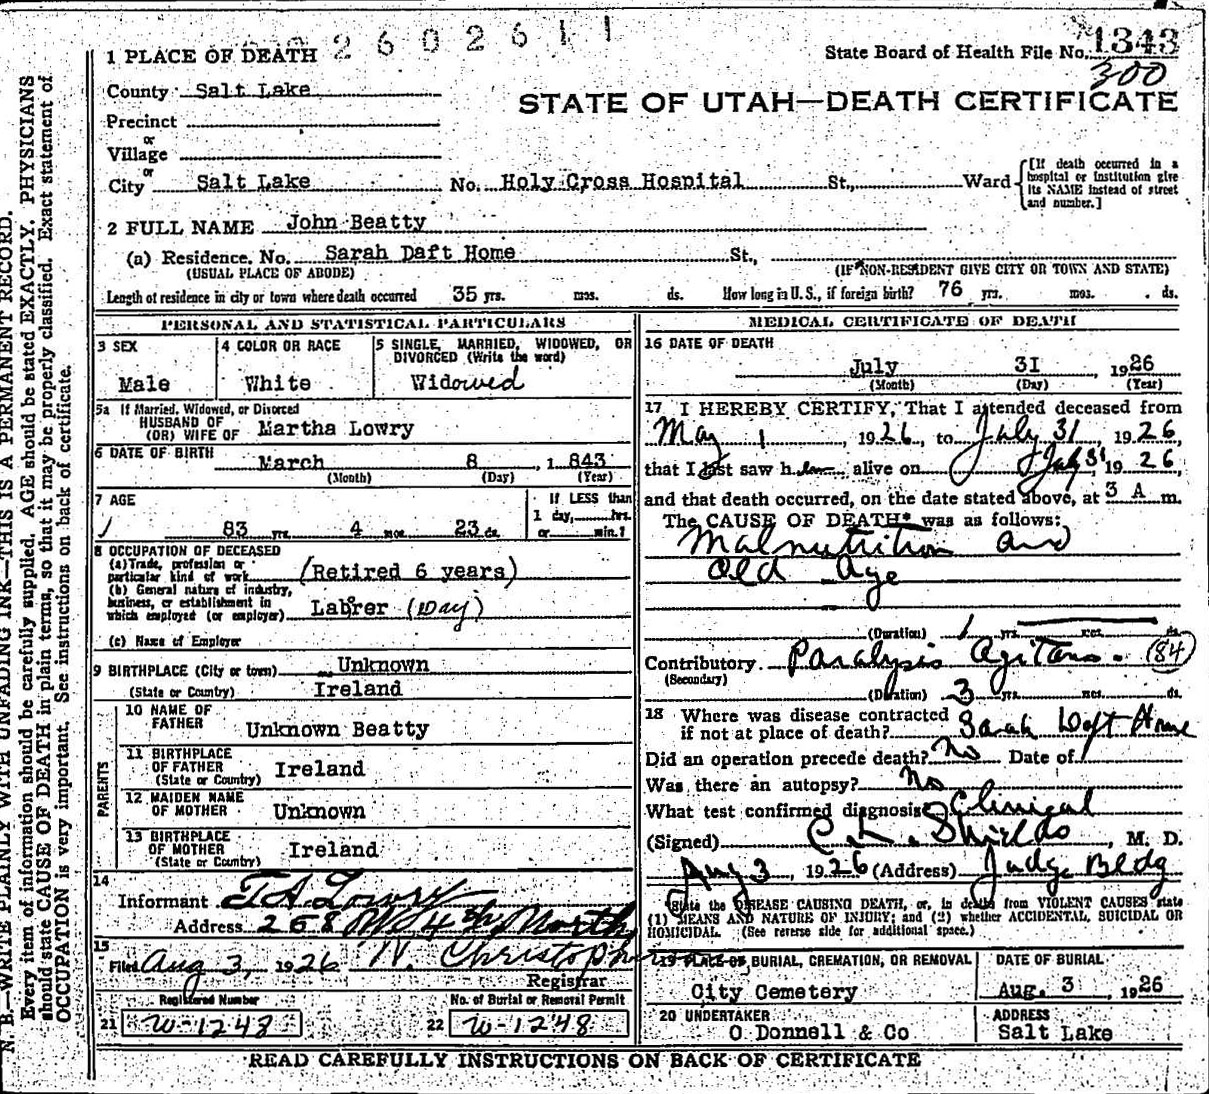 2602611
1 PLACE OF DEATH
State Board of Health File No. 1343
300
County Salt Lake
STATE OF UTAH—DEATH CERTIFICATE
Precinct
or
Village
or
City Salt Lake No. Holy Cross Hospital St., Ward
[If death occurred in a hospital or institution give its NAME instead of street and number.]
2 FULL NAME John Beatty
(a) Residence. No. Sarah Daft Home St.,
(USUAL PLACE OF ABODE) (IF NON-RESIDENT GIVE CITY OR TOWN AND STATE)
Length of residence in city or town where death occurred 35 yrs. mos. ds. How long in U. S., if foreign birth? 76 yrs. mos. ds.
PERSONAL AND STATISTICAL PARTICULARS
3 SEX
Male
4 COLOR OR RACE
White
5 SINGLE, MARRIED, WIDOWED, OR
DIVORCED (Write the word)
Widowed
5a If Married, Widowed, or Divorced
HUSBAND OF
(OR) WIFE OF Martha Lowry
6 DATE OF BIRTH March 8, 1843
(Month) (Day) (Year)
7 AGE
83 yrs. 4 mos. 23 ds.
If LESS than
1 day, hrs.
or min.?
8 OCCUPATION OF DECEASED
(a) Trade, profession or
particular kind of work (Retired 6 years)
(b) General nature of industry,
business, or establishment in
which employed (or employer) Labrer (Day)
(c) Name of Employer
9 BIRTHPLACE (City or town) Unknown
(State or Country) Ireland
PARENTS
10 NAME OF
FATHER Unknown Beatty
11 BIRTHPLACE
OF FATHER Ireland
(State or Country)
12 MAIDEN NAME
OF MOTHER Unknown
13 BIRTHPLACE
OF MOTHER Ireland
(State or Country)
14
Informant Lowry
Address 258 W 4th North
15
Filed Aug 3, 1926 N. Christoph
Registrar
Registered Number
21 W-1248
No. of Burial or Removal Permit
22 W-1248
MEDICAL CERTIFICATE OF DEATH
16 DATE OF DEATH
July 31, 1926
(Month) (Day) (Year)
17 I HEREBY CERTIFY, That I attended deceased from
May 1, 1926, to July 31, 1926,
that I last saw him alive on July 31 1926,
and that death occurred, on the date stated above, at 3 A m.
The CAUSE OF DEATH* was as follows:
Malnutrition and
Old Age
(Duration) 1 yrs. mos. ds.
Contributory Paralysis Agitans. (84)
(Secondary)
(Duration) 3 yrs. mos. ds.
18 Where was disease contracted
if not at place of death? Sarah Daft Home
Did an operation precede death? No Date of
Was there an autopsy? No
What test confirmed diagnosis? Clinical
(Signed) C. L. Shields, M. D.
Aug 3, 1926 (Address) Judge Bldg
State the DISEASE CAUSING DEATH, or, in deaths from VIOLENT CAUSES state
(1) MEANS AND NATURE OF INJURY; and (2) whether ACCIDENTAL, SUICIDAL OR
HOMICIDAL. (See reverse side for additional space.)
19 PLACE OF BURIAL, CREMATION, OR REMOVAL
City Cemetery
DATE OF BURIAL
Aug. 3, 1926
20 UNDERTAKER
O Donnell & Co
ADDRESS
Salt Lake
READ CAREFULLY INSTRUCTIONS ON BACK OF CERTIFICATE
N. B.—WRITE PLAINLY WITH UNFADING INK—THIS IS A PERMANENT RECORD.
Every item of information should be carefully supplied. AGE should be stated EXACTLY. PHYSICIANS
should state CAUSE OF DEATH in plain terms, so that it may be properly classified. Exact statement of
OCCUPATION is very important. See instructions on back of certificate.